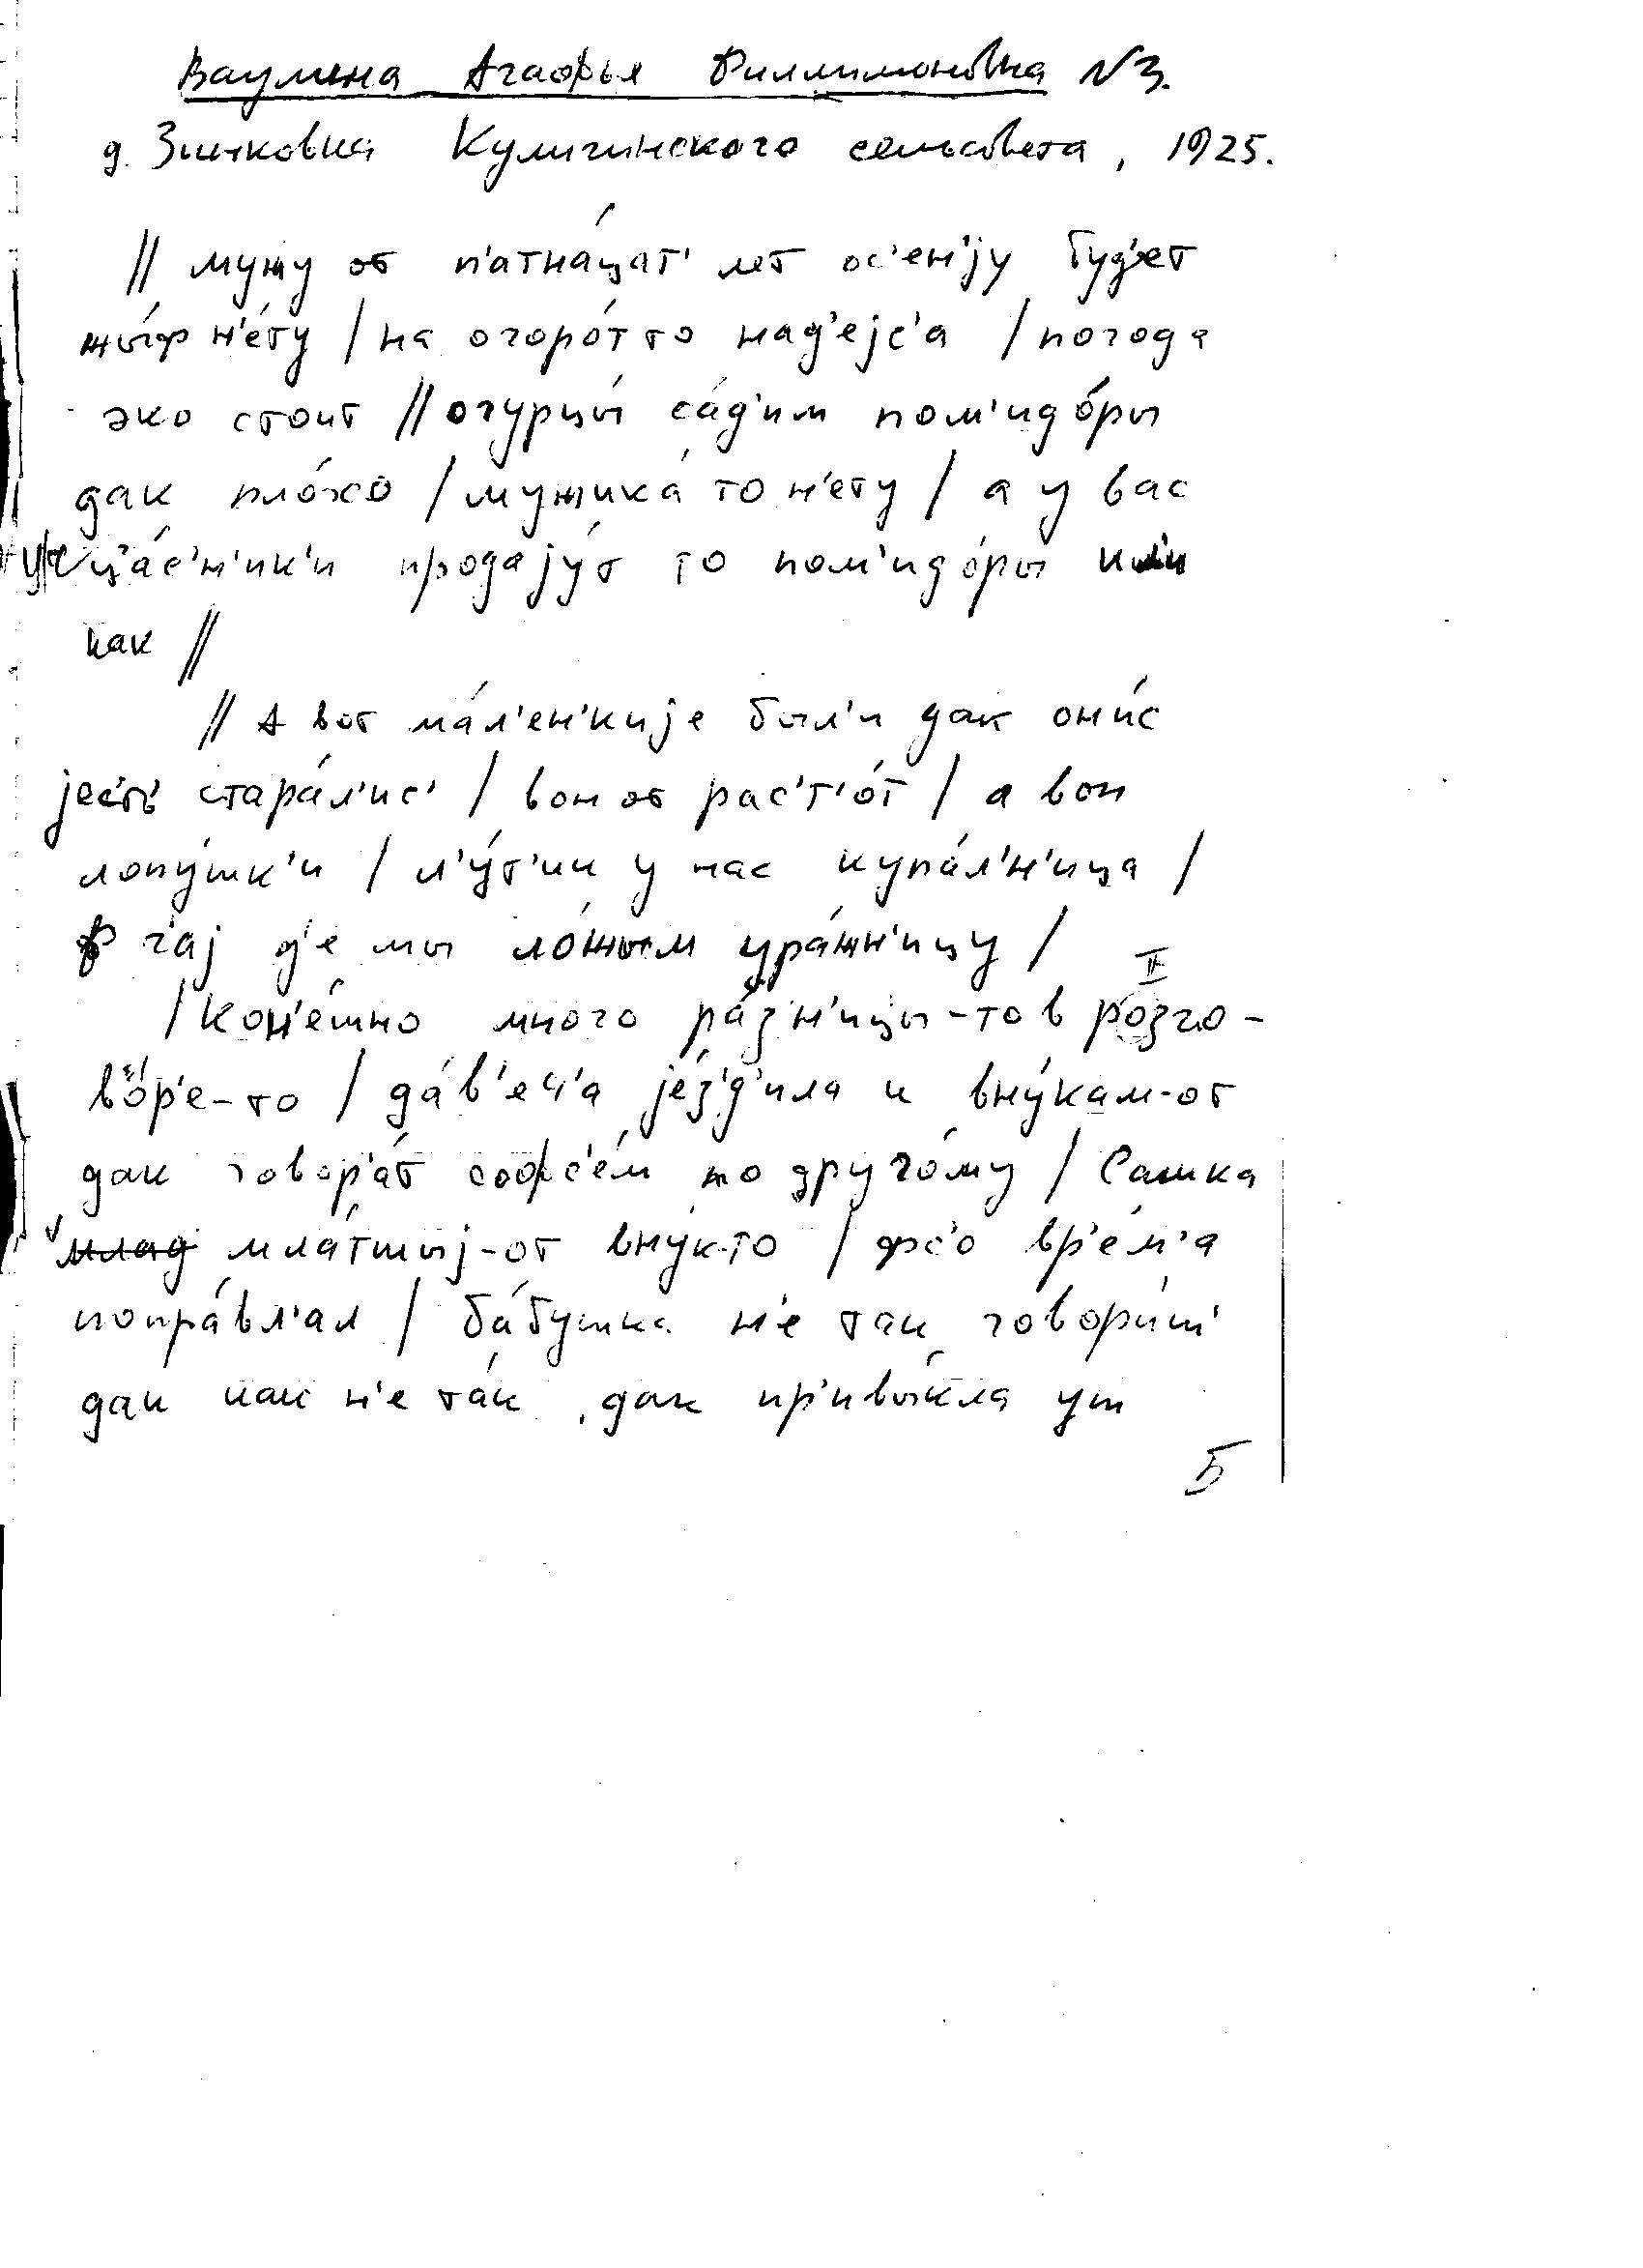 Ваулина Агафья Филлимоновна N3.
д. Зинковка Кулигинского сельсовета, 1925.
// мужу от п'атна́цат' лет ос'ен'jу буд'ет
жы́ф н'е́ту / на огоро́т то над'еjс'а / погода
эко стоит // огурцы́ са́д'им пом'идо́ры
дак пло́хо / мужика́ то н'ету / а у вас
уч'а́с'н'ик'и продаjу́т то пом'идо́ры или
как //
// А вот ма́л'ен'киjе был'и дак они́с
jес'т' стара́л'ис' / вон от рас'т'о́т / а вон
лопу́шк'и / л'у́т'ик у нас купа́л'н'ица /
ф ч'аj д'е мы ло́жыем ура́жн'ицу /
/ кон'е́шно много ра́зн'ицы-то в розго-
во́р'е-то / да́в'еч'а jе́з'д'ила к вну́кам-от
дак говор'а́т софс'е́м по друго́му / Сашка
млад мла́тшыj-от вну́к-то / фс'о вр'е́м'а
попра́вл'ал / ба́бушка н'е так говори́ш'
дак как н'е та́к, дак пр'ивы́кла уш
5